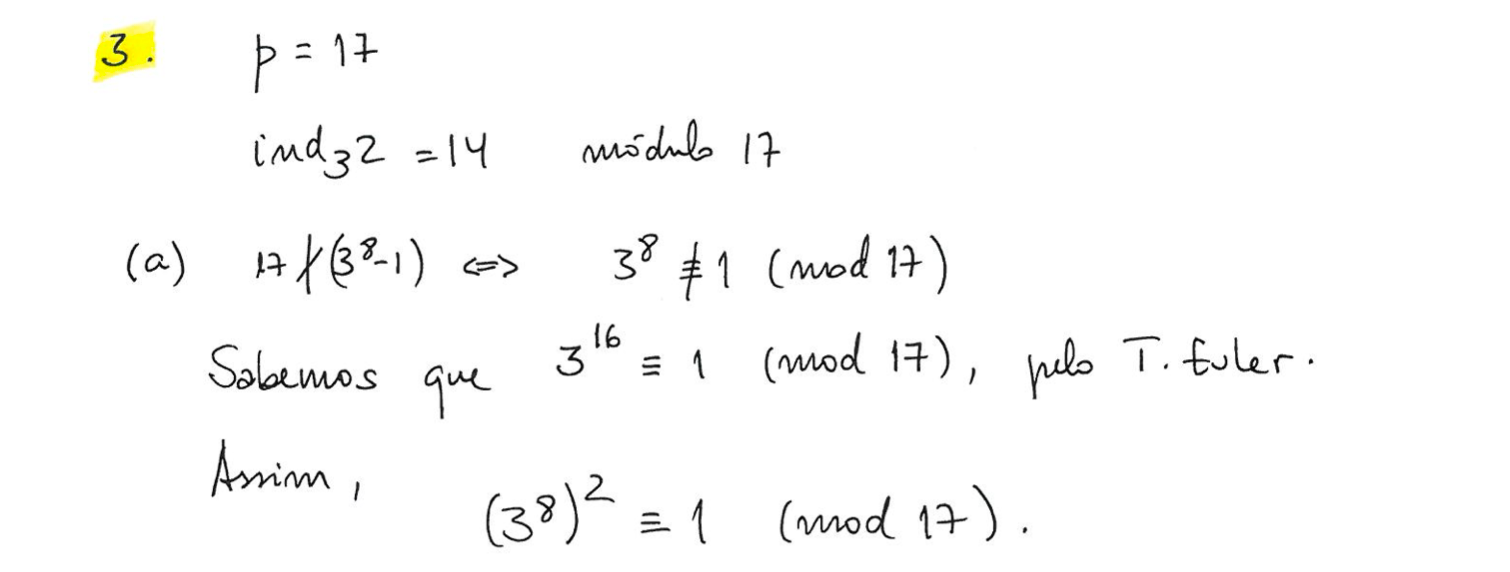 3. p = 17
ind₃2 = 14 módulo 17
(a) 17 ∤ (3⁸-1) ⇔ 3⁸ ≢ 1 (mod 17)
Sabemos que 3¹⁶ ≡ 1 (mod 17), pelo T. Euler.
Assim,
(3⁸)² ≡ 1 (mod 17).